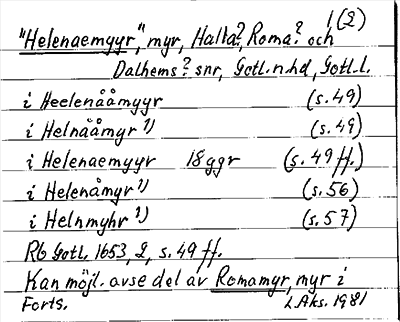 1(2)
"Helenaemyyr", myr, Halla?, Roma? och
Dalhems? snr, Gotl. n. hd, Gotl. l.
i Heelenååmyyr (s. 49)
i Helnååmyr 1) (s. 49)
i Helenaemyyr 18 ggr (s. 49 ff.)
i Helenåmyr 1) (s. 56)
i Helnmyhr 1) (s. 57)
Rb Gotl. 1653, 2, s. 49 ff.
Kan möjl. avse del av Romamyr, myr i
Forts. LAks. 1981